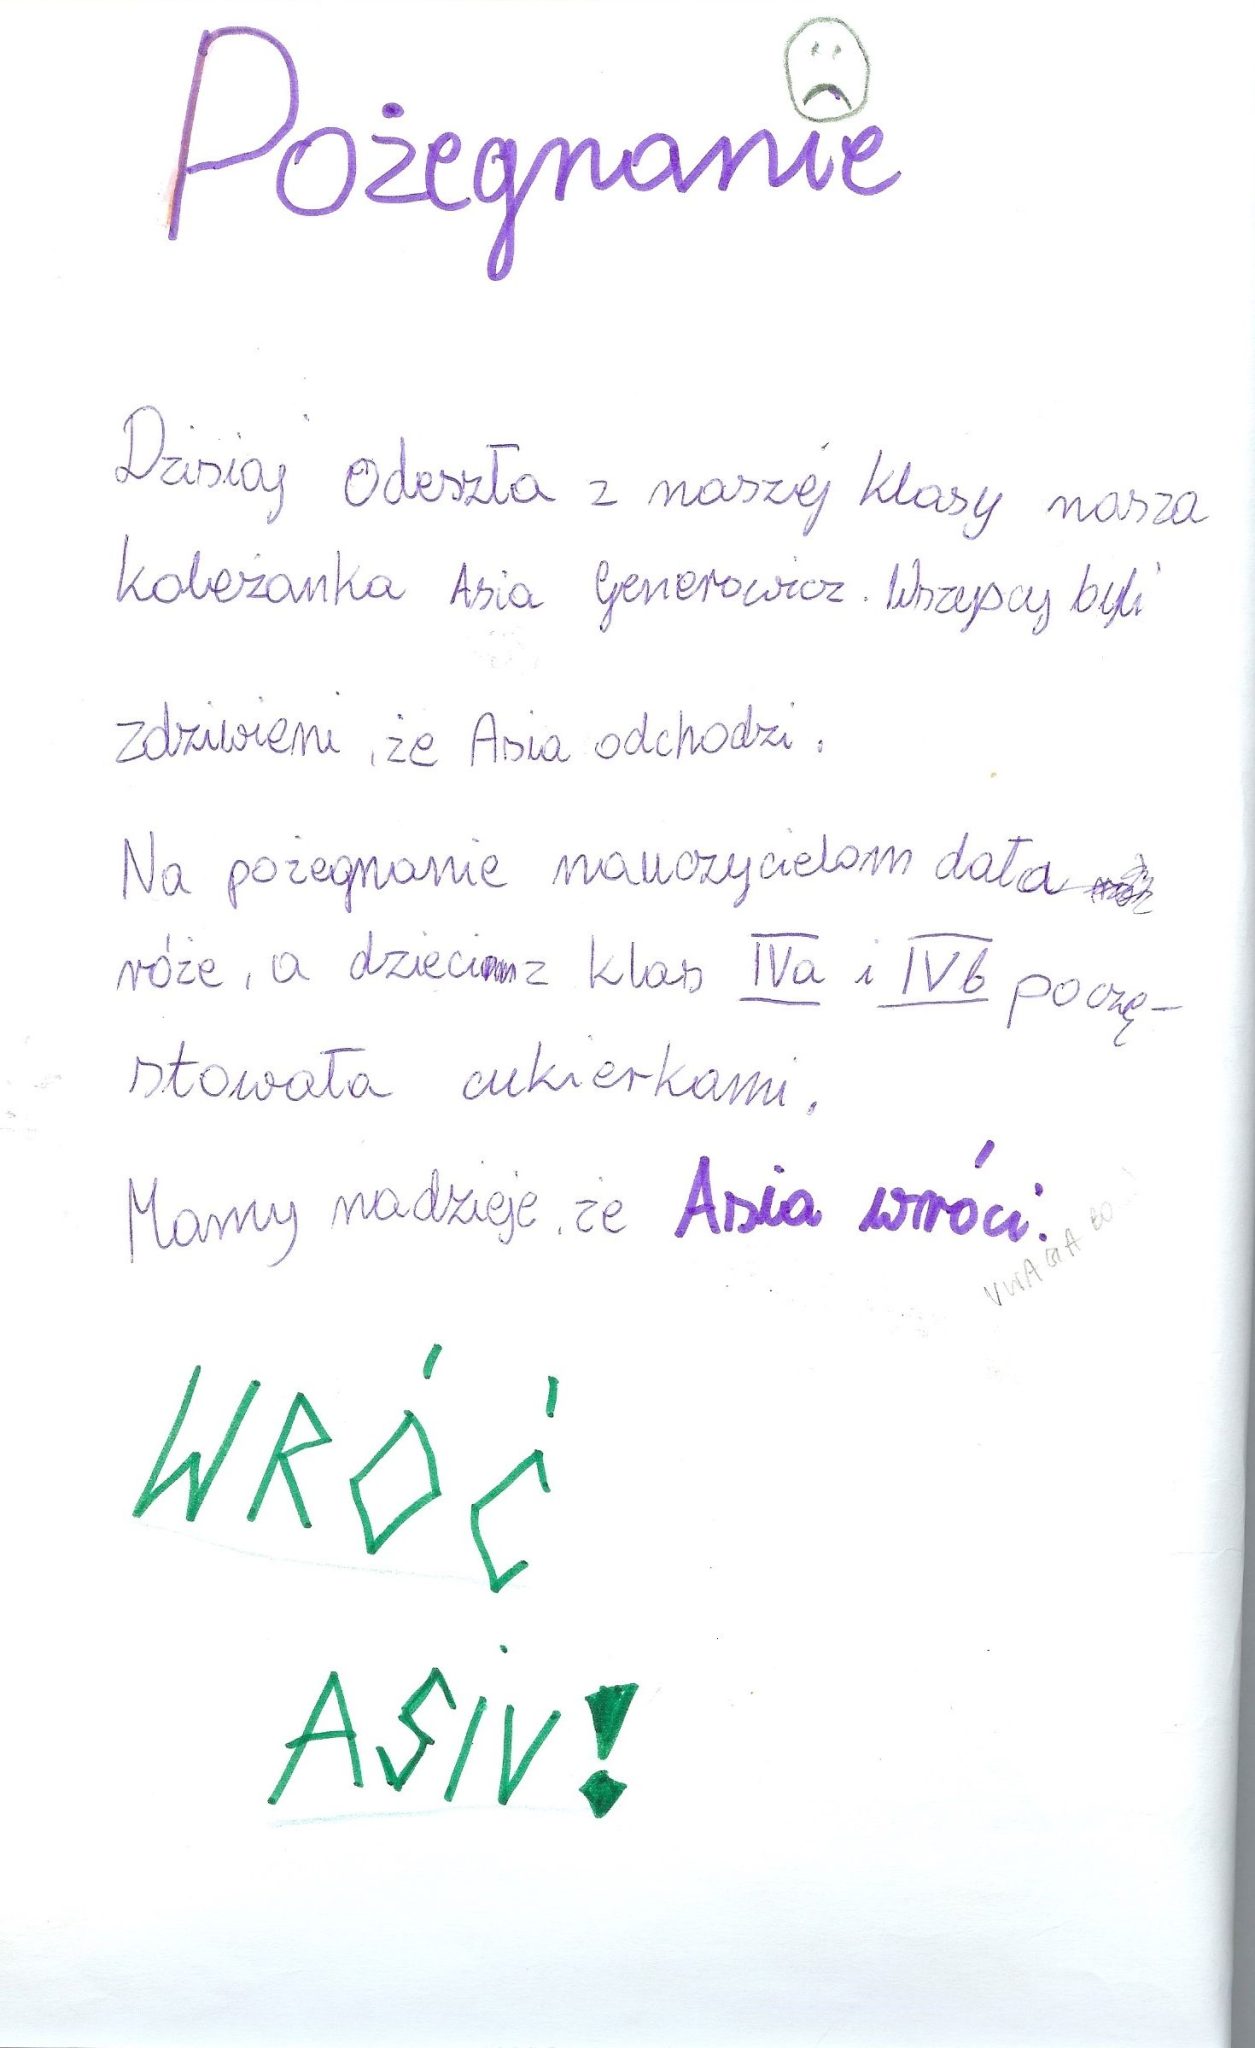 Pożegnanie
Dzisiaj Odeszła z naszej klasy nasza
koleżanka Asia Generowicz. Wszyscy byli
zdziwieni, że Asia odchodzi.
Na pożegnanie nauczycielom dała
róże, a dzieciom z klas IVa i IVb poczę-
stowała cukierkami.
Mamy nadzieje, że Asia wróci.
WRÓĆ
ASIU!